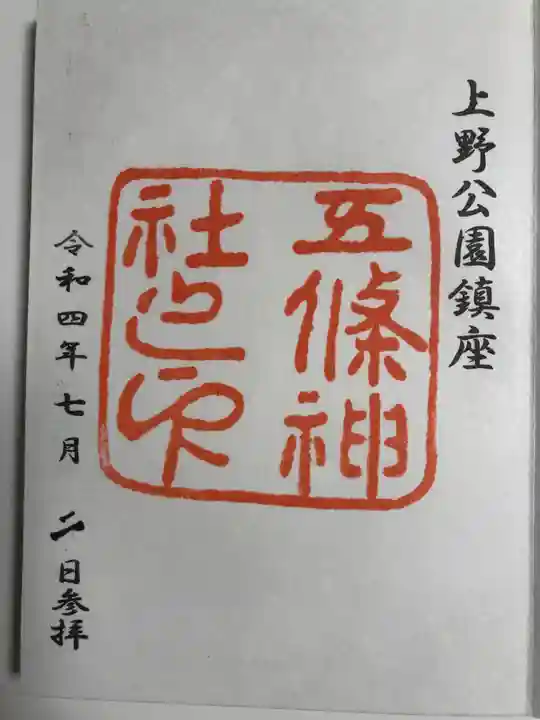 上野公園鎮座
五條神
社之印
令和四年七月二日参拝